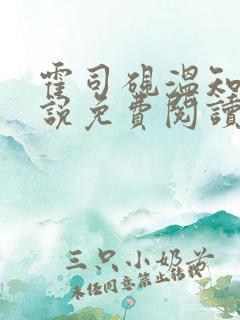 霍司硯溫知
說免費閱讀
三只小奶苦
未经同意禁止转载